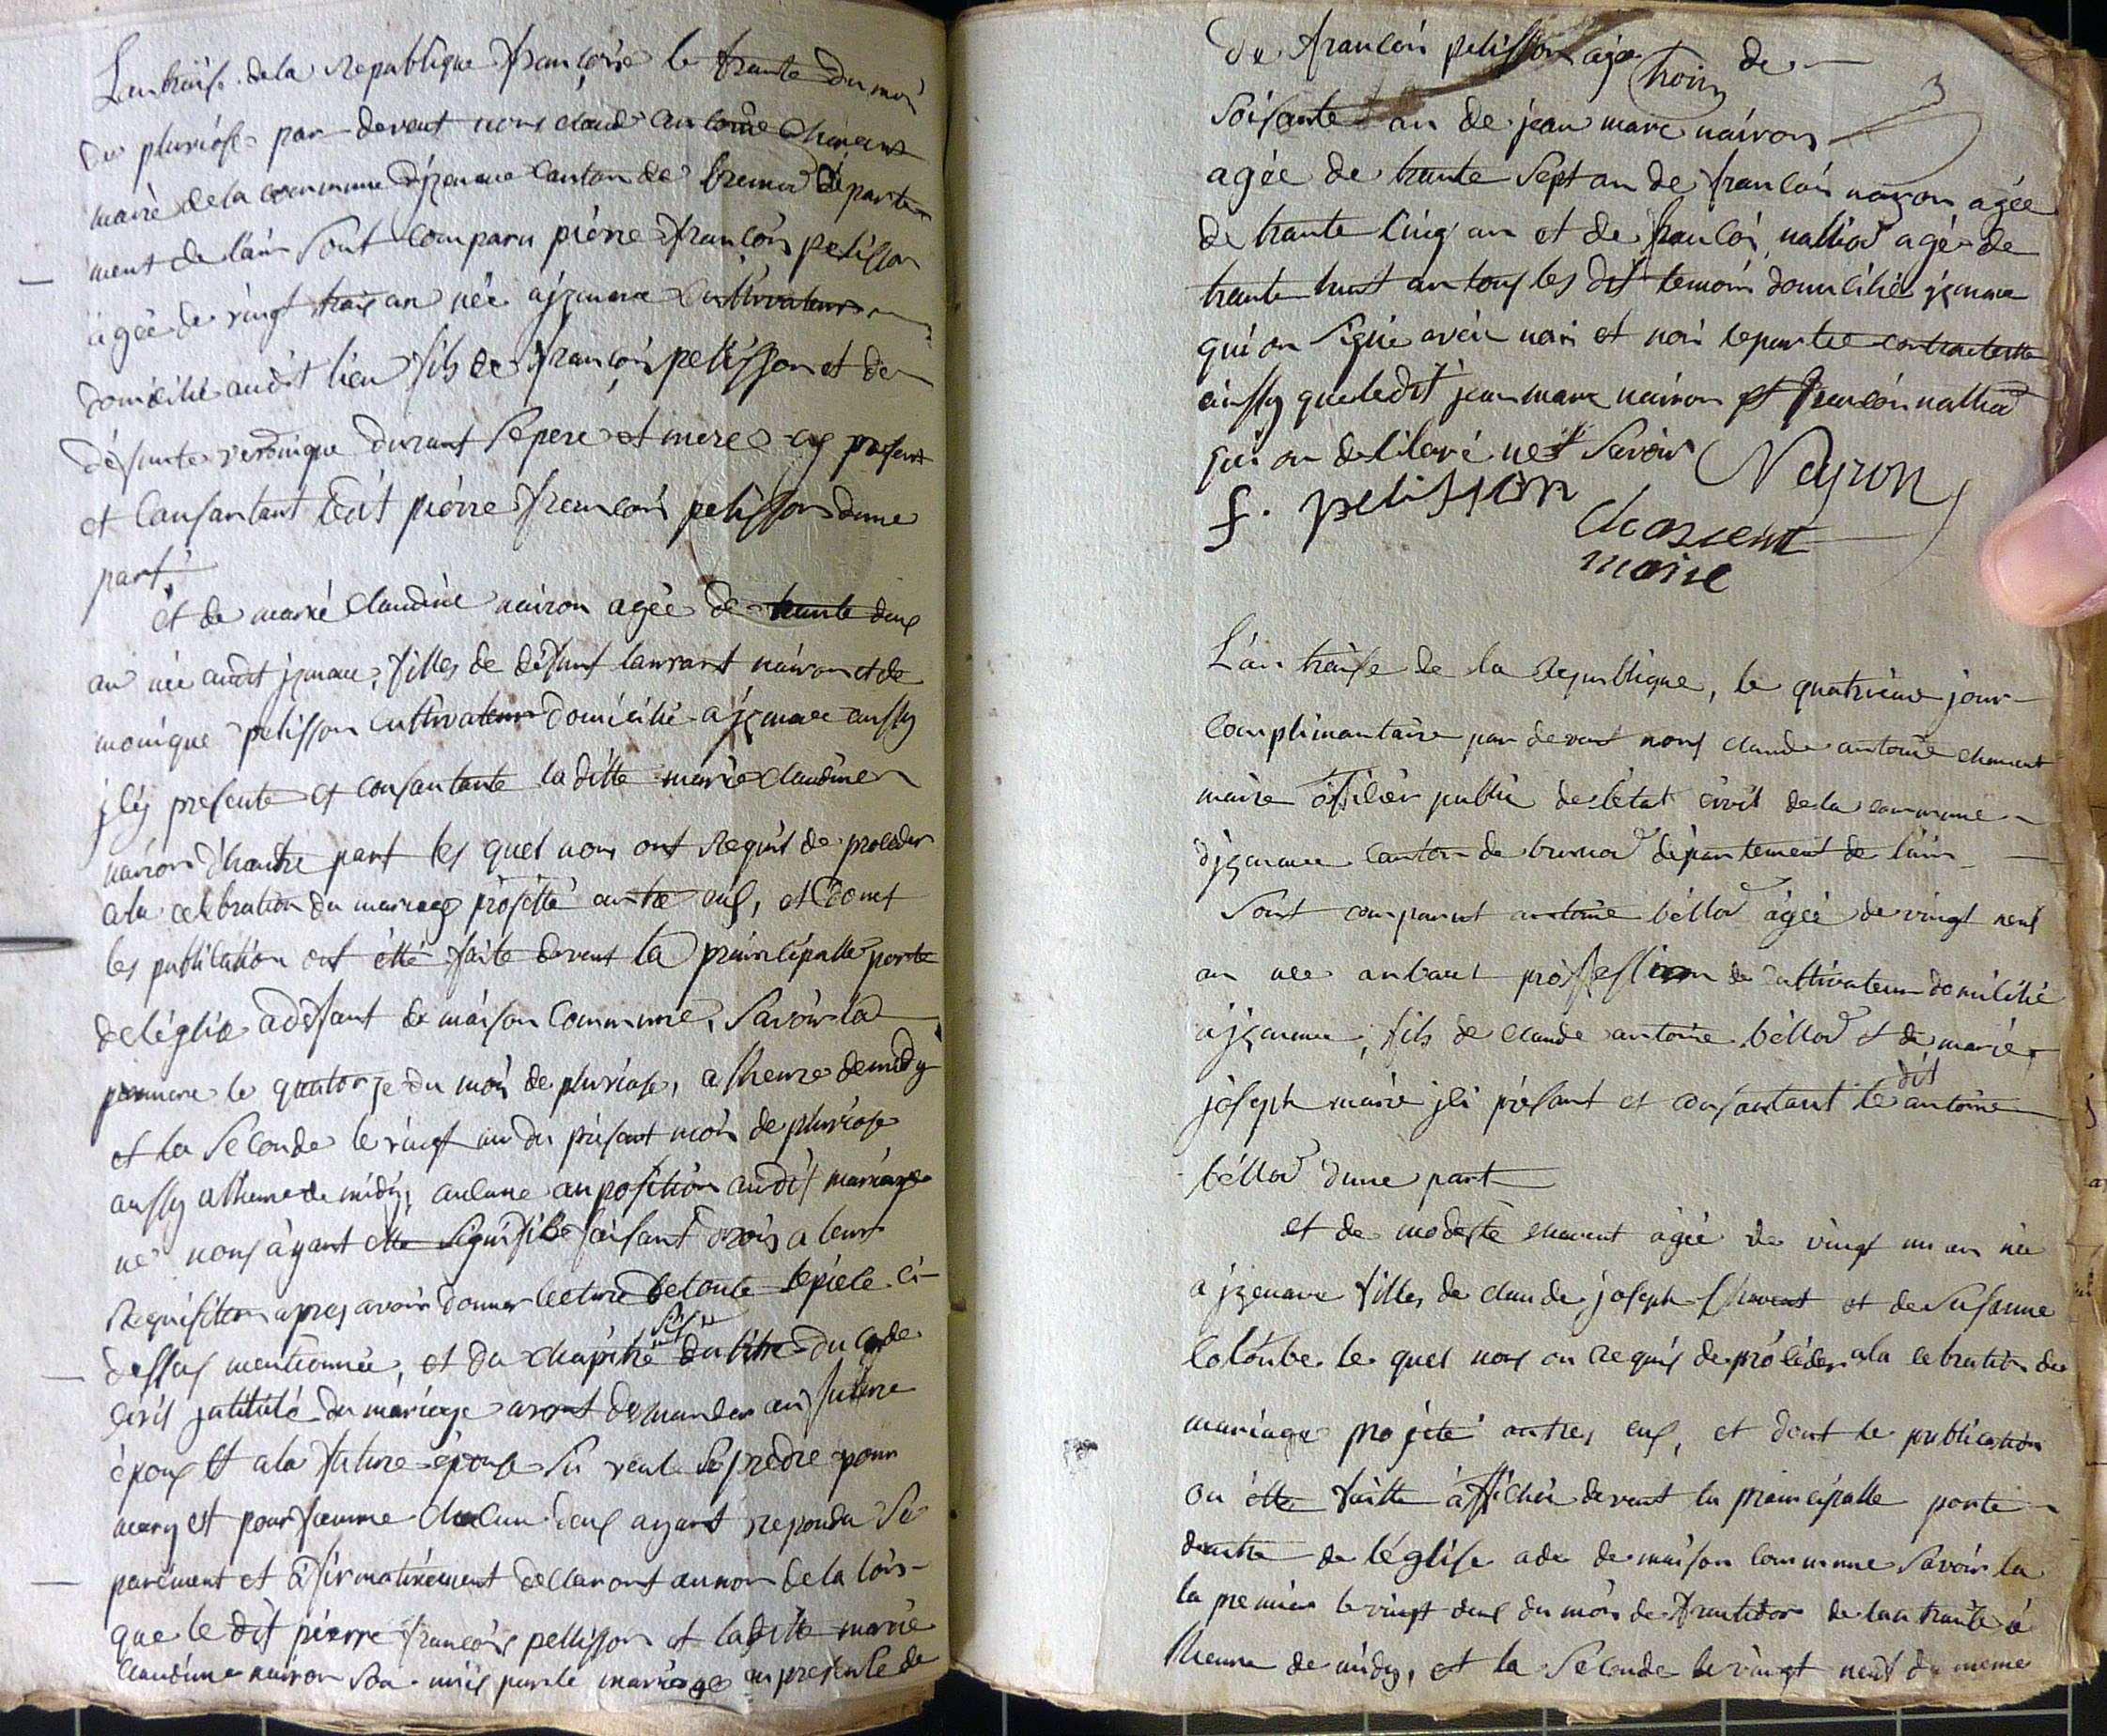 L'an traise de la Republique françoise le trante du moi
du pluviose par devant nous claude antoine Chavent
maire de la commune d'jzenave canton de brenod départe
ment de l'ain sont comparu piérre françois pelisson
agée de vingt trois an née a jzenave Cultivateur
domicilié audit lieu fils de françois pellisson et de
défunte veronique durant se pere et mere icy presant
et Consantant ledit piérre françois pelisson dune
part,
et de marie claudine nairon agée de trante deux
an née audit jzenave, filles de défunt laurant nairon et de
monique pelisson cultivateur domicilié a jzenave aussy
jley presente et consantante la ditte marie claudine
nairon d'hautre part les quel nous ont Requis de proceder
a la celebration du mariage projetté antre eux, et donct
les publication ont étté faite devent la prainsipalle porte
de léglise adéffant de maison Commune, Savoir la
premiere le quatorze du mois de pluviose, a lheure de midy
et la Seconde le vingt un du présent mois de pluviose
aussy a lheure de midy, aucune anposition audit mariage
ne nous ayant étte signifiée faisant drois a leur
Requisition apres avoir donner lecture de toute lepiece ci-
dessus mentionnée, et du chapitre six du titre du code
civil jntitulé du mariage avont demander au future
époux et a la future épouse si veule se predre pour
mary et pour famme chacun deux ayant repondu Sé
parément et affirmativement declaront au nom de la lois
que le dit pierre françois pellisson et la ditte marie
claudine nairon son unis par le mariage an presence de
de françois pelisson agée de
trois
3
soisante an de jean marc nairon
agée de trante sept an de françois nairon agée
de trante cinq an et de françois nallod agé de
trante huit an tous les dit temoin domicilié jzenave
qui on signé avéic nous et non lepartie contractante
ainssy que ledit jean marc nairon et françois nallod
qui on déclaré ne Savoir Neyron
f. pelisson
chavent
maire
L'an traise de la Republique, le quatrieme jour
complimantaire par devant nous claude antoine chavent
maire officier public de létat civil de la commune
d'jzenave canton de brenod département de l'ain
Sont comparut antoine béllod agée de vingt neuf
an née profession de cultivateur domicilié
a jzenave, fils de claude antoine béllod et de marie
joseph marie jci présant et consantant le dit antoine
béllod dune part
et de modeste chavent agée de vingt un an née
a jzenave filles de claude joseph Chavent et de Susanne
Colombe. le quel nous on requis de proceder a la cebration du
mariage projeté antres eux, et dont le publication
on étte faitte afficher devent la prainsipalle porte
dantre de léglise ade de maison commune Savoir la
la premiere le vingt deux du mois de fructidor de lan traise a
lheure de midy, et la Seconde le vingt neuf du meme